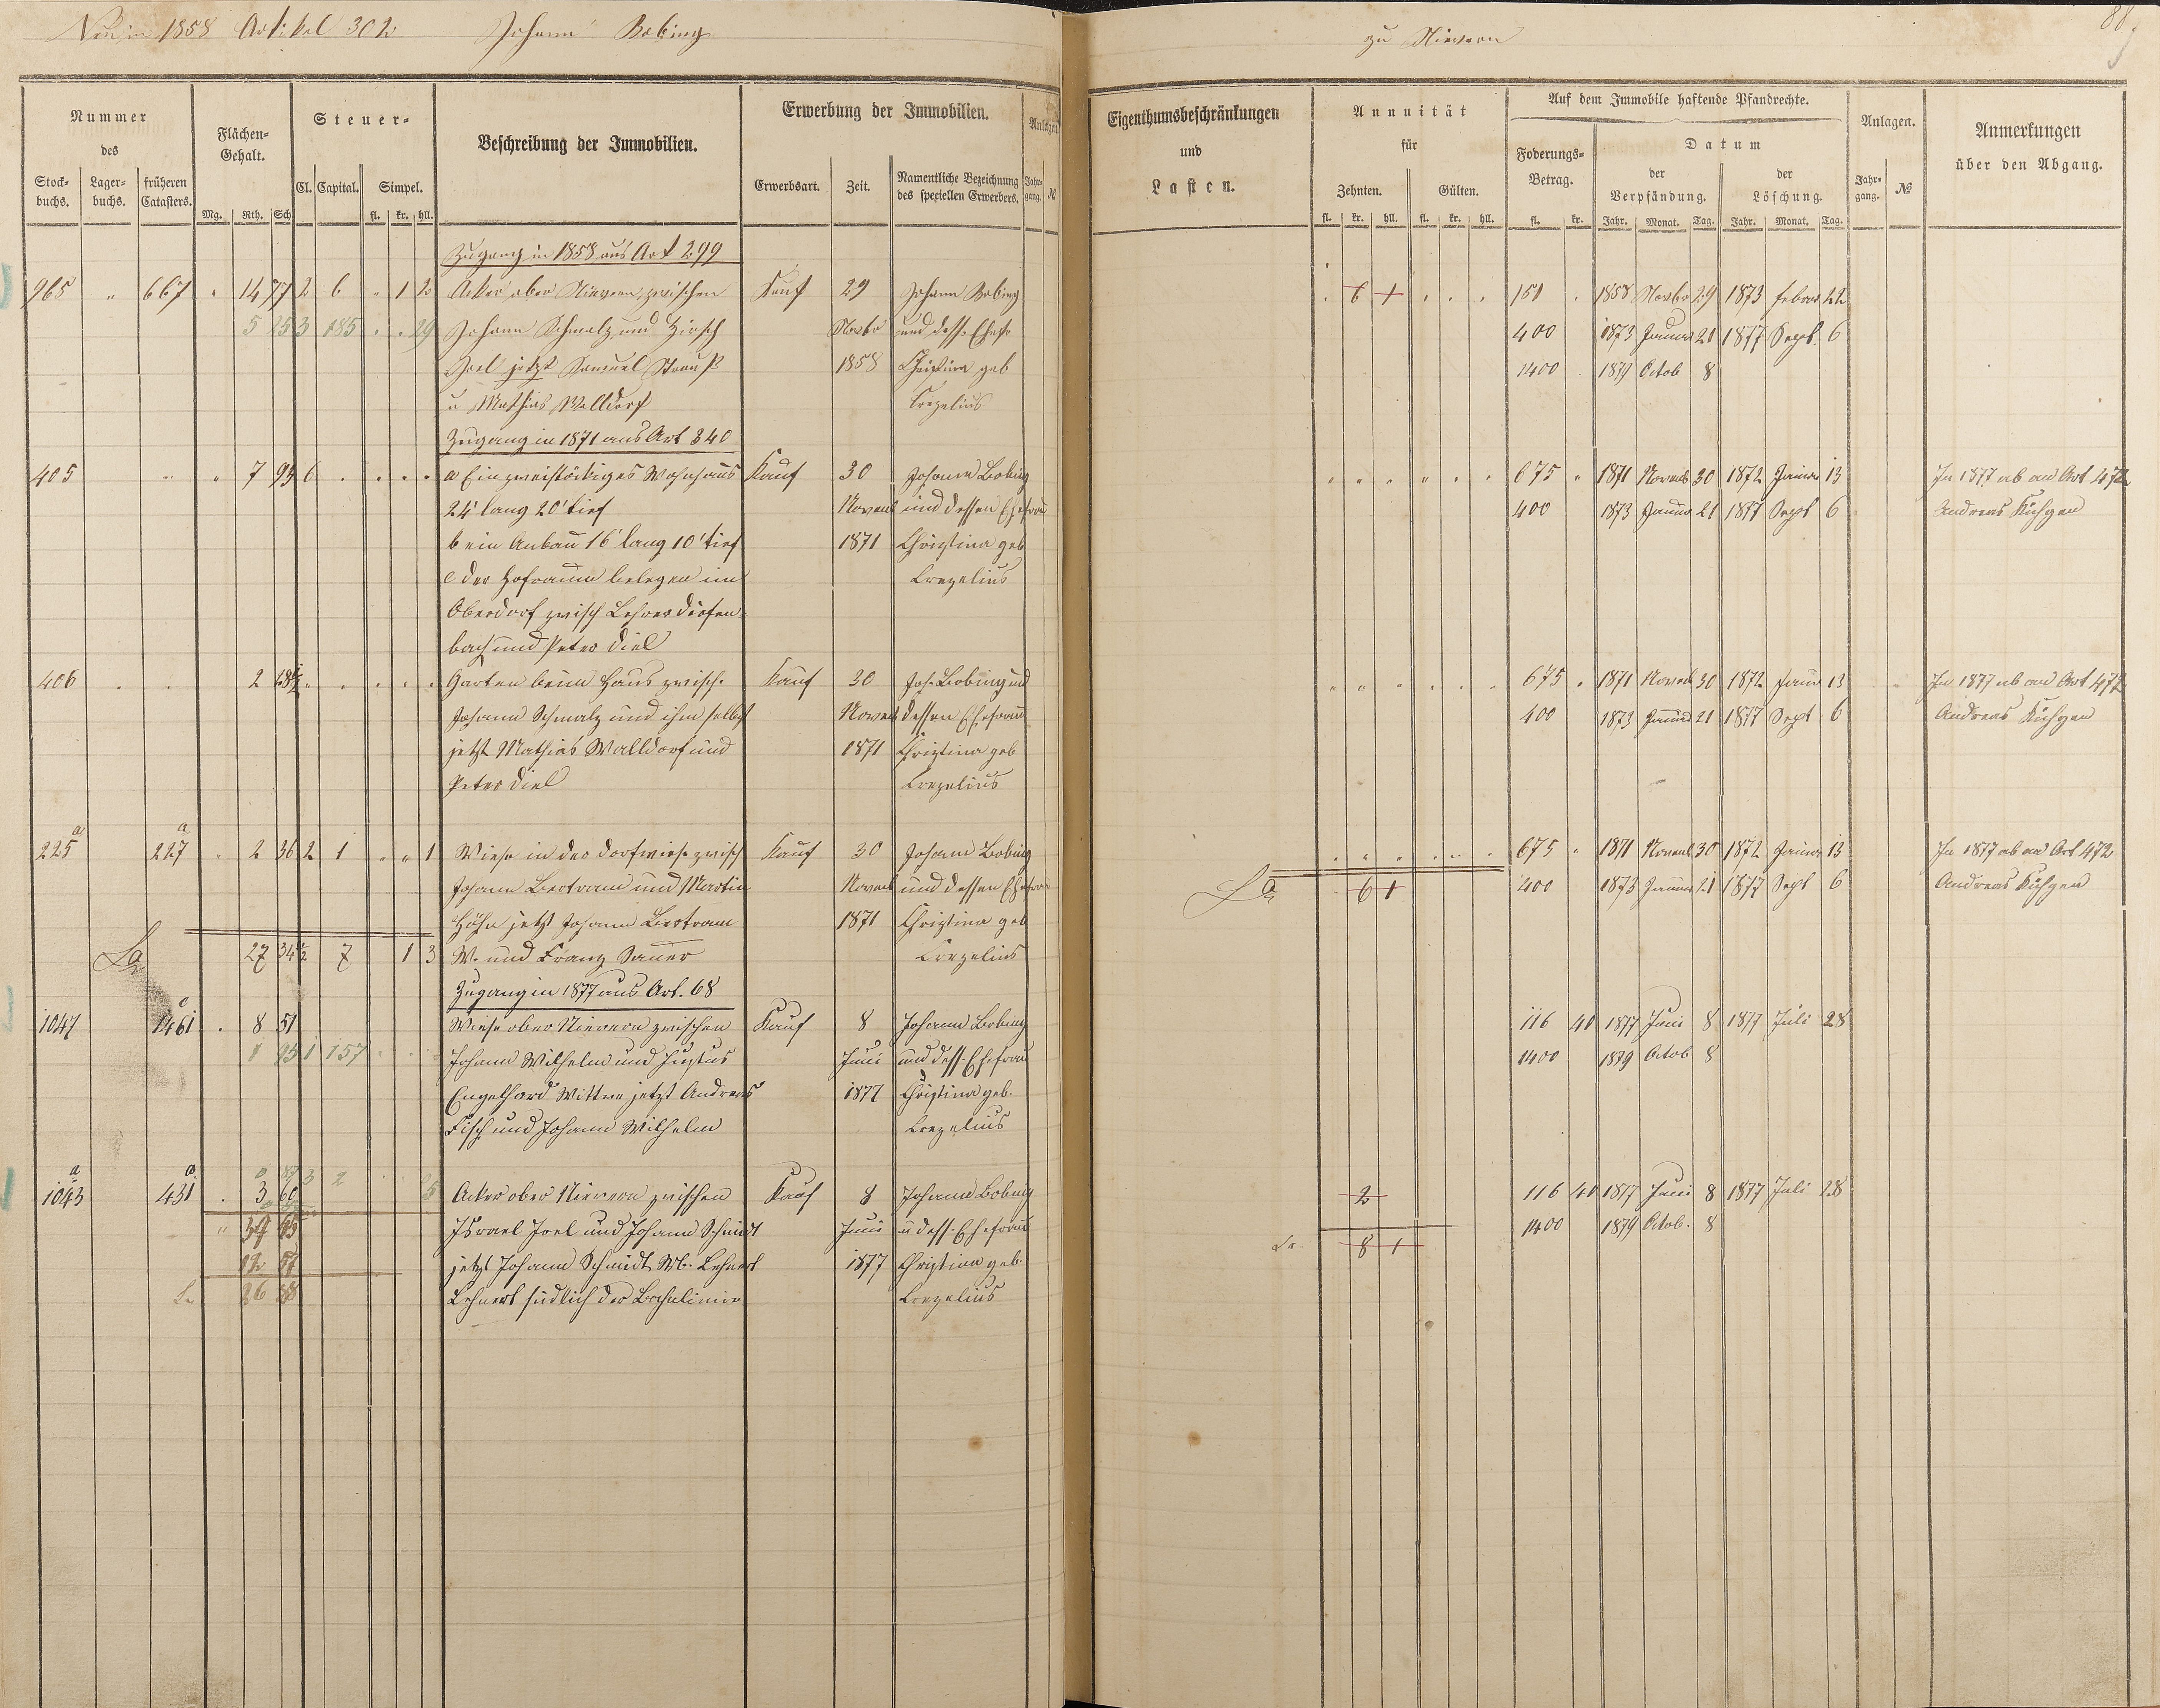 Neu in 1858 Artikel 302 Johann Bobing
zu Nievern
88
Nummer des
Stock-buchs. Lager-buchs. früheren Catasters.
Flächen-Gehalt.
Mg. Rth. Sch
Steuer-
Cl. Capital. Simpel.
fl. kr. hll.
Beschreibung der Immobilien.
Erwerbung der Immobilien.
Erwerbsart. Zeit. Namentliche Bezeichnung des speziellen Erwerbers.
Anlagen
Jahr-gang. №
Eigenthumsbeschränkungen und Lasten.
Annuität für
Zehnten. Gülten.
fl. kr. hll. fl. kr. hll.
Auf dem Immobile haftende Pfandrechte.
Foderungs-Betrag.
fl. kr.
Datum
der Verpfändung. der Löschung.
Jahr. Monat. Tag. Jahr. Monat. Tag.
Anlagen.
Jahr-gang. №
Anmerkungen über den Abgang.
Zugang in 1858 aus Art 299
968 " 667 " 14 77 2 6 " 1 2 Acker ober Nievern zwischen Kauf 29 Johann Bobing 6 1 151 1858 Novbr 29 1873 Febru 22
5 25 3 185 . . 29 Johann Schmalz und Hirsch Novbr und dess. Ehefr 400 1873 Januar 21 1877 Sept. 6
Joel jetzt Samuel Strauß 1858 Christina geb 1400 1879 Octob 8
u Mathias Walldorf Crezelius
Zugang in 1871 aus Art 340
405 " " 7 95 6 a Ein zweistöckiges Wohnhaus Kauf 30 Johann Bobing 675 " 1871 Novemb 30 1872 Januar 13 In 1877 ab an Art 472
24' lang 20' tief Novemb und dessen Ehefrau 400 1873 Januar 21 1877 Sept 6 Andreas Kühgen
b ein Anbau 16' lang 10' tief 1871 Christina geb
c der Hofraum belegen im Crezelius
Oberdorf zwisch Lehrer Diefen
bach und Peter Diel
406 2 Garten beim Haus zwisch. Kauf 30 Joh. Bobing und 675 1871 Novemb 30 1872 Januar 13 In 1877 ab an Art 472
Johann Schmalz und ihm selbst Novemb dessen Ehefrau 400 1873 Januar 21 1877 Sept 6 Andreas Kühgen
jetzt Mathias Walldorf und 1871 Christina geb
Peter Diel Crezelius
225 a 227 a " 2 36 2 1 " " 1 Wiese in der Dorfwiese zwisch Kauf 30 Johann Bobing 675 " 1871 Novemb 30 1872 Januar 13 In 1877 ab an Art 472
Johann Bertram und Martin Novemb und dessen Ehefrau La 6 1 400 1873 Januar 21 1877 Sept 6 Andreas Kühgen
Höhn jetzt Johann Bertram 1871 Christina geb
La 27 34 1/2 7 1 3 W. und Franz Sauer Crezelius
Zugang in 1877 aus Art. 68
1047 1461 . 8 51 Wiese ober Nievern zwischen Kauf 8 Johann Bobing 116 40 1877 Juni 8 1877 Juli 28
1 95 1 157 Johann Wilhelm und Justus Juni und dess. Ehefrau 1400 1879 Octob 8
Engelhard Wittwe jetzt Andreas 1877 Christina geb.
Fisch und Johann Wilhelm Crezelius
1043 a 431 a . 3 60 Acker ober Nievern zwischen Kauf 8 Johann Bobing 2 116 40 1877 Juni 8 1877 Juli 28
Israel Joel und Johann Schmidt Juni u dess. Ehefrau 1400 1879 Octob. 8
jetzt Johann Schmidt Wb. Lehnert 1877 Christina geb. La. 8 1
Lehnert südlich der Bahnlinie Crezelius